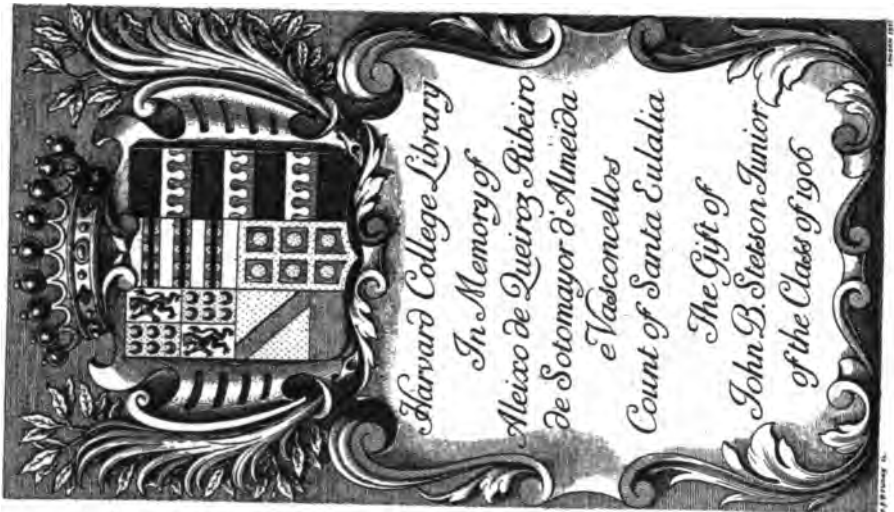 Harvard College Library
In Memory of
Aleixo de Queiroz Ribeiro
de Sotomayor d'Almeida
e Vasconcellos
Count of Santa Eulalia
The Gift of
John B. Stetson Junior
of the Class of 1906